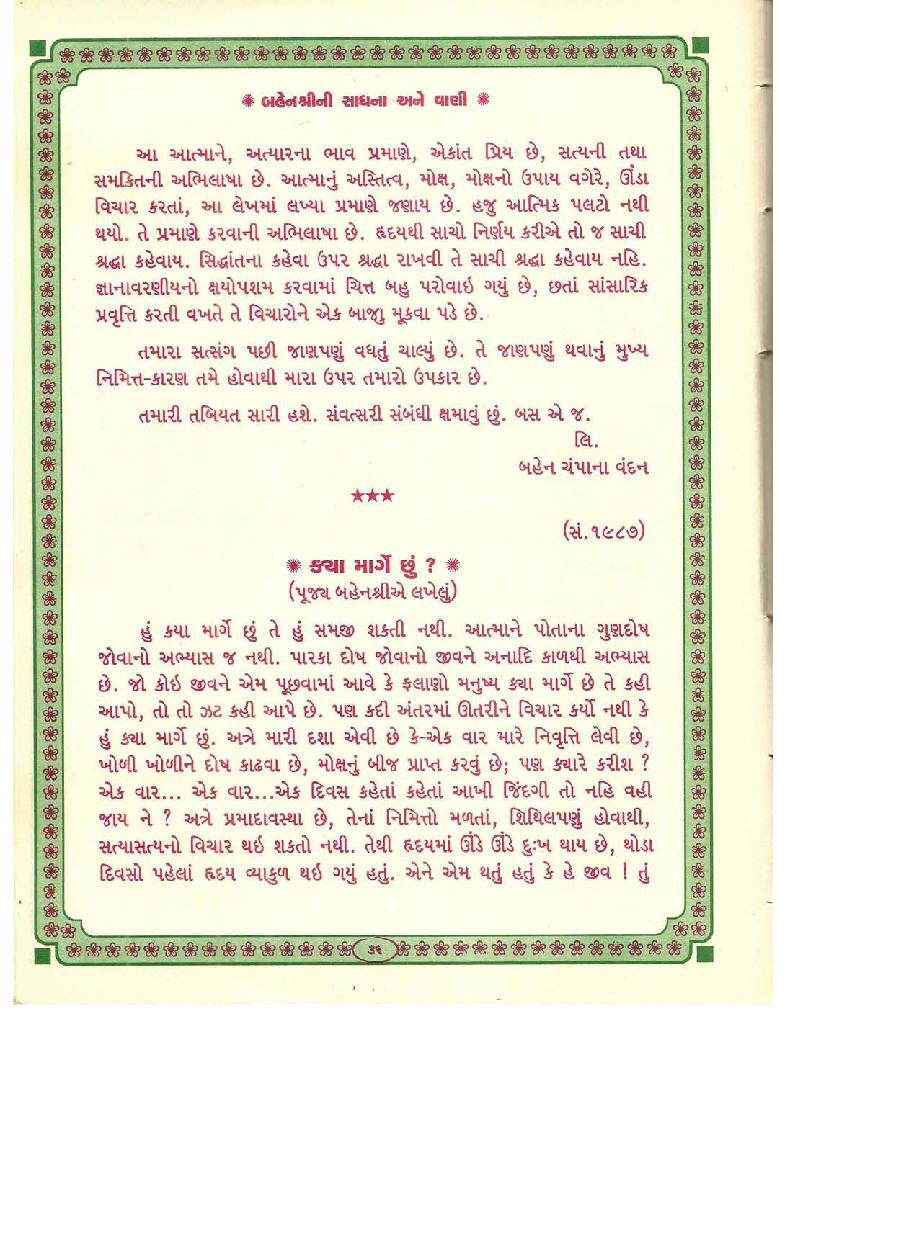 ✺ બહેનશ્રીની સાધના અને વાણી ✺
આ આત્માને, અત્યારના ભાવ પ્રમાણે, એકાંત પ્રિય છે, સત્યની તથા
સમકિતની અભિલાષા છે. આત્માનું અસ્તિત્વ, મોક્ષ, મોક્ષનો ઉપાય વગેરે, ઊંડા
વિચાર કરતાં, આ લેખમાં લખ્યા પ્રમાણે જણાય છે. હજુ આત્મિક પલટો નથી
થયો. તે પ્રમાણે કરવાની અભિલાષા છે. હૃદયથી સાચો નિર્ણય કરીએ તો જ સાચી
શ્રદ્ધા કહેવાય. સિદ્ધાંતના કહેવા ઉપર શ્રદ્ધા રાખવી તે સાચી શ્રદ્ધા કહેવાય નહિ.
જ્ઞાનાવરણીયનો ક્ષયોપશમ કરવામાં ચિત્ત બહુ પરોવાઇ ગયું છે, છતાં સાંસારિક
પ્રવૃત્તિ કરતી વખતે તે વિચારોને એક બાજુ મૂકવા પડે છે.
તમારા સત્સંગ પછી જાણપણું વધતું ચાલ્યું છે. તે જાણપણું થવાનું મુખ્ય
નિમિત્ત-કારણ તમે હોવાથી મારા ઉપર તમારો ઉપકાર છે.
તમારી તબિયત સારી હશે. સંવત્સરી સંબંધી ક્ષમાવું છું. બસ એ જ.
લિ.
બહેન ચંપાના વંદન
★★★
(સં.૧૯૮૭)
✺ ક્યા માર્ગે છું ? ✺
(પૂજ્ય બહેનશ્રીએ લખેલું)
હું કયા માર્ગે છું તે હું સમજી શકતી નથી. આત્માને પોતાના ગુણદોષ
જોવાનો અભ્યાસ જ નથી. પારકા દોષ જોવાનો જીવને અનાદિ કાળથી અભ્યાસ
છે. જો કોઇ જીવને એમ પૂછવામાં આવે કે ફલાણો મનુષ્ય ક્યા માર્ગે છે તે કહી
આપો, તો તો ઝટ કહી આપે છે. પણ કદી અંતરમાં ઊતરીને વિચાર કર્યો નથી કે
હું ક્યા માર્ગે છું. અત્રે મારી દશા એવી છે કે-એક વાર મારે નિવૃત્તિ લેવી છે,
ખોળી ખોળીને દોષ કાઢવા છે, મોક્ષનું બીજ પ્રાપ્ત કરવું છે; પણ ક્યારે કરીશ ?
એક વાર... એક વાર...એક દિવસ કહેતાં કહેતાં આખી જિંદગી તો નહિ વહી
જાય ને ? અત્રે પ્રમાદાવસ્થા છે, તેનાં નિમિત્તો મળતાં, શિથિલપણું હોવાથી,
સત્યાસત્યનો વિચાર થઇ શકતો નથી. તેથી હૃદયમાં ઊંડે ઊંડે દુઃખ થાય છે, થોડા
દિવસો પહેલાં હૃદય વ્યાકુળ થઇ ગયું હતું. એને એમ થતું હતું કે હે જીવ ! તું
૩૬